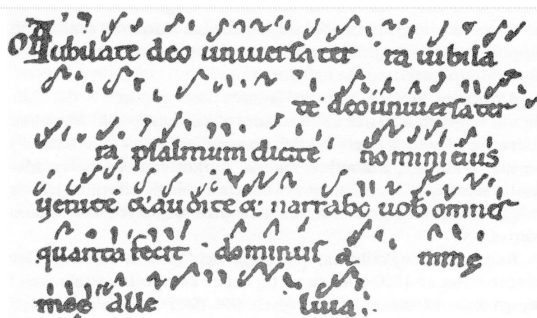 OF Iubilate deo universa ter ra iubila
te deo universa ter
ra psalmum dicite nomini eius
venite & audite & narrabo vob omnes
quanta fecit dominus anime
mee alle luia.